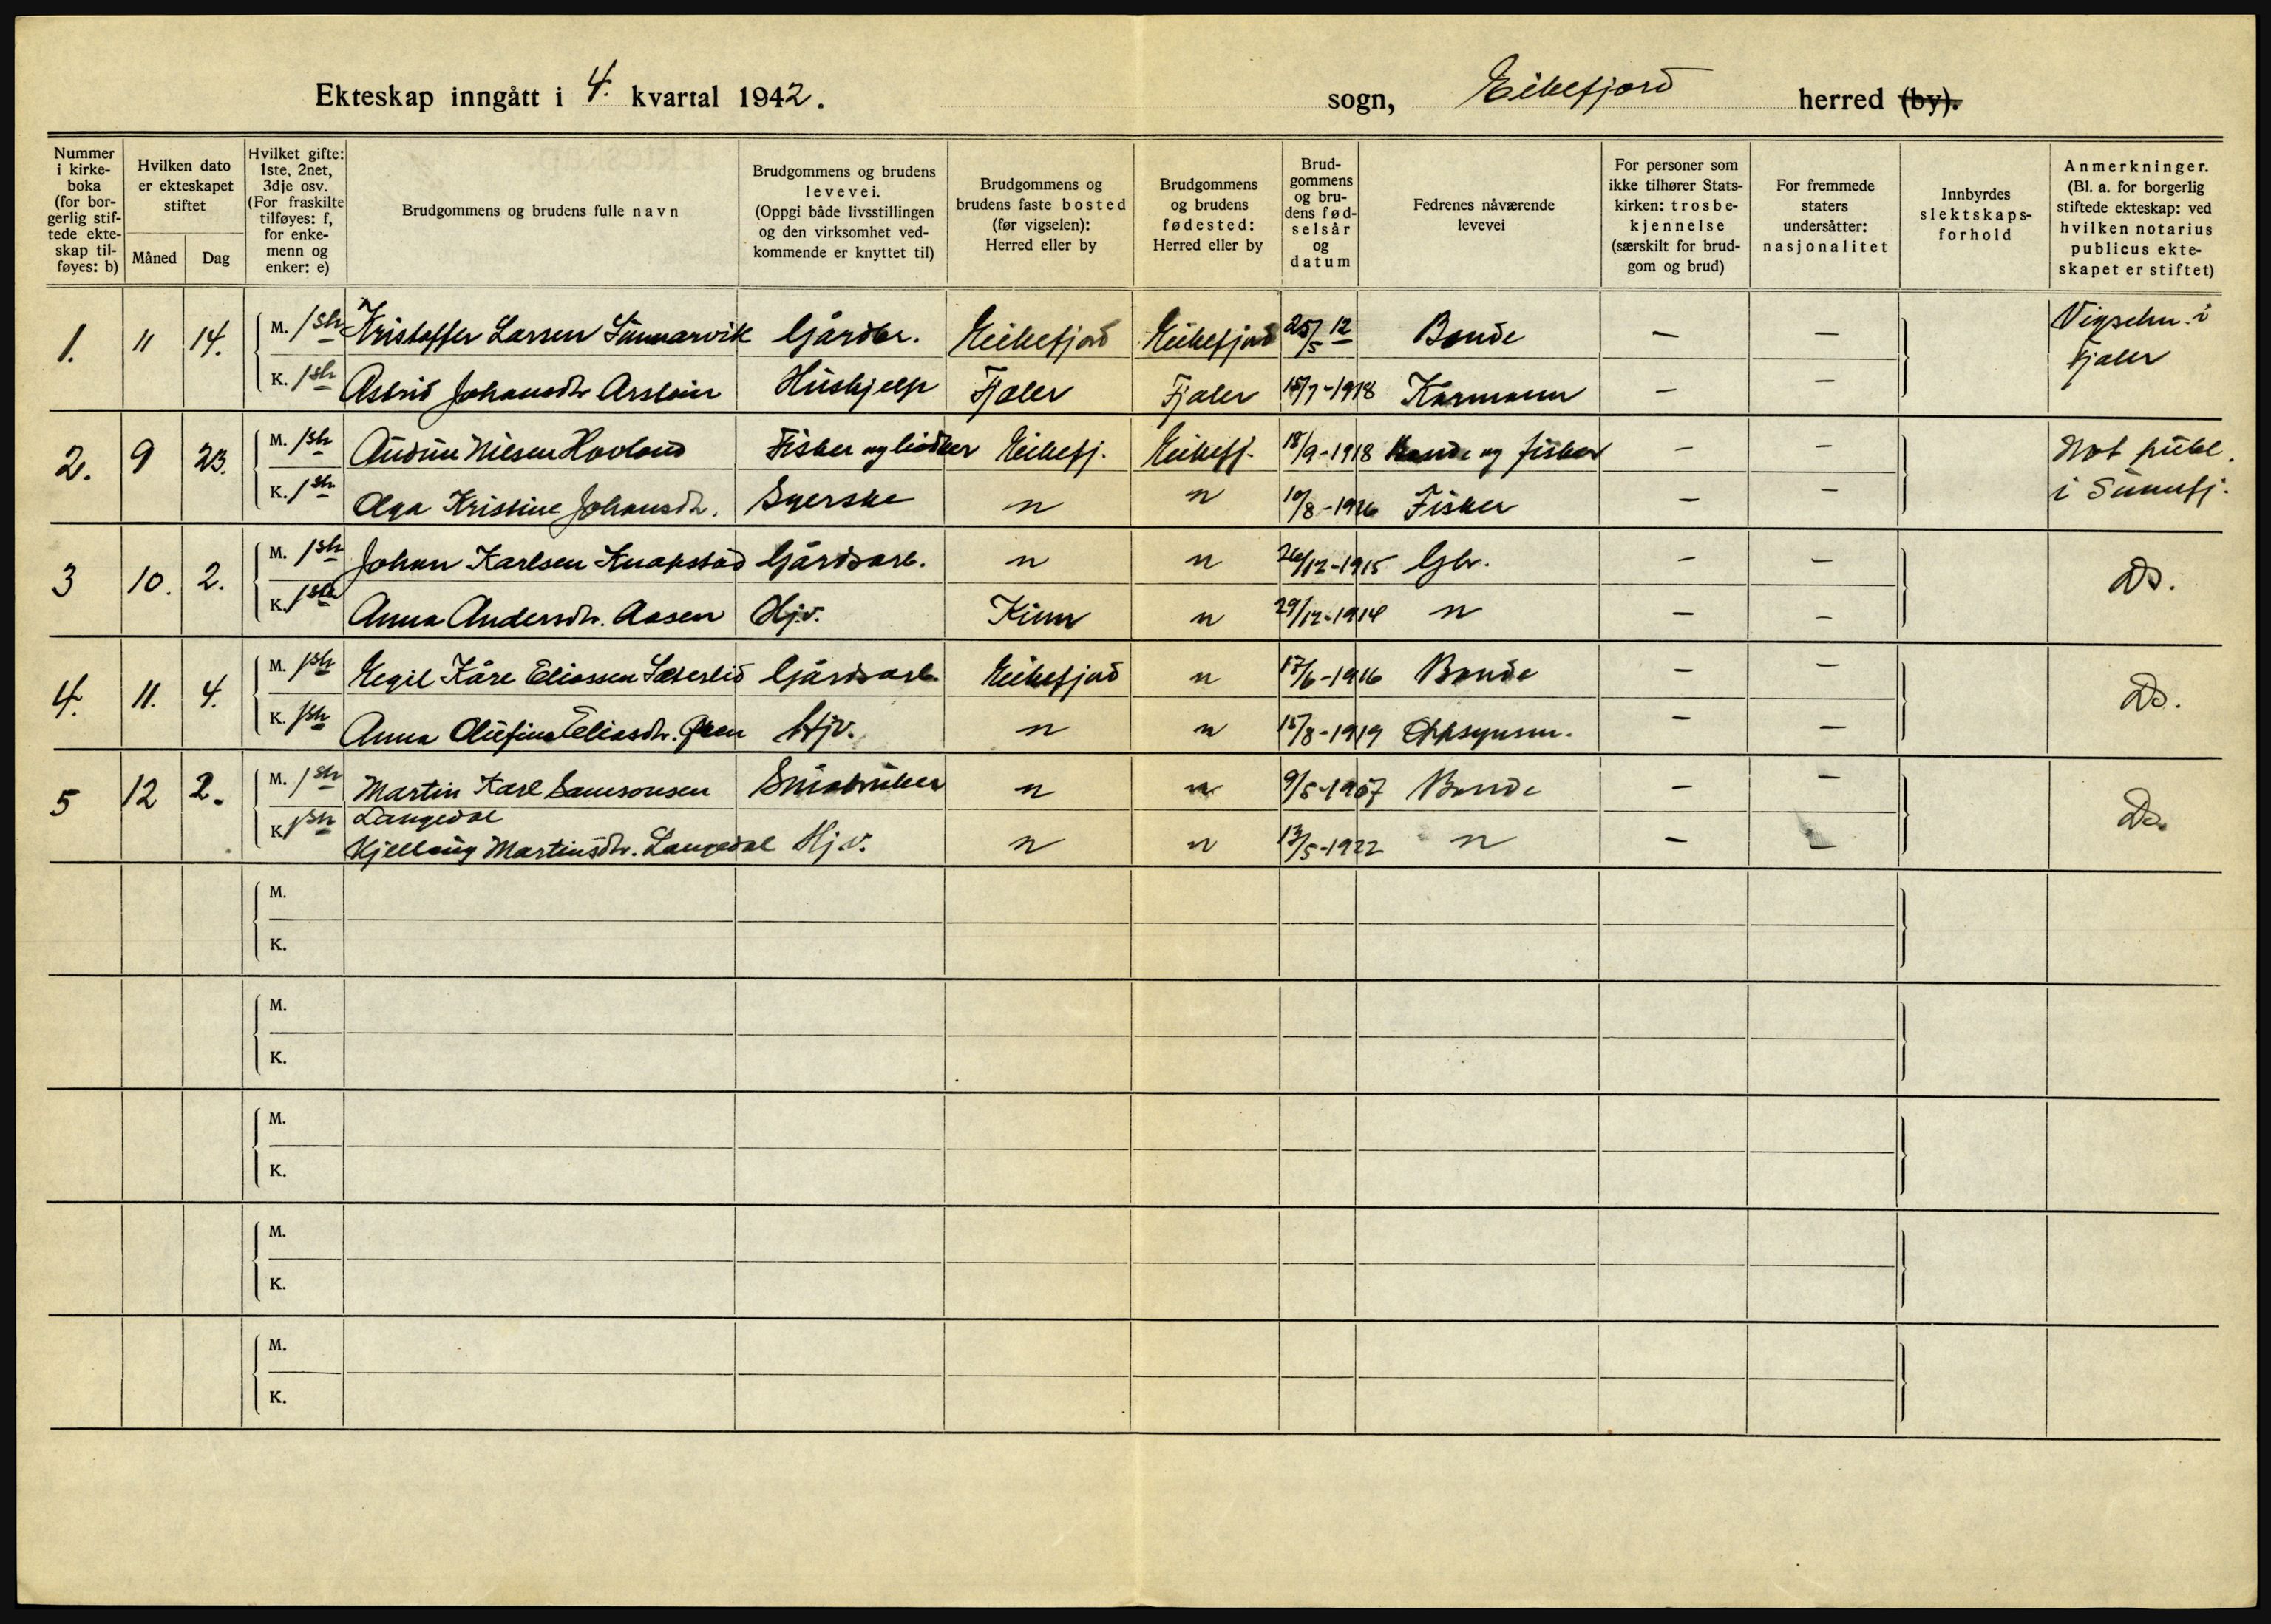 Ekteskap inngått i 4. kvartal 1942. sogn, Eikefjord herred (by).
Nummer i kirke- boka (for bor- gerlig stif- tede ekte- skap til- føyes: b)
Hvilken dato er ekteskapet stiftet
Måned Dag
Hvilket gifte: 1ste, 2net, 3dje osv. (For fraskilte tilføyes: f, for enke- menn og enker: e)
Brudgommens og brudens fulle navn
Brudgommens og brudens levevei. (Oppgi både livsstillingen og den virksomhet ved- kommende er knyttet til)
Brudgommens og brudens faste bosted (før vigselen): Herred eller by
Brudgommens og brudens fødested: Herred eller by
Brud- gommens og bru- dens fød- selsår og datum
Fedrenes nåværende levevei
For personer som ikke tilhører Stats- kirken: trosbe- kjennelse (særskilt for brud- gom og brud)
For fremmede staters undersåtter: nasjonalitet
Innbyrdes slektskaps- forhold
Anmerkninger. (Bl. a. for borgerlig stiftede ekteskap: ved hvilken notarius publicus ekte- skapet er stiftet)
1. 11 14. M. 1ste Kristoffer Larsen Gårdbr. Eikefjord Eikefjord 25/5 12 Bonde — — Vigselen i
K. 1ste Astrid Johansdtr Hushjelp Fjaler Fjaler 15/7-1918 — — Fjaler
2. 9 23. M. 1ste Audun Nilsen Hovland Fisker og Eikefj. Eikefj. 18/9-1918 Bonde og fisker — — Not publ.
K. 1ste Olga Kristine Johansdtr. Syerske " " 10/8-1916 Fisker — — i Sunnfj.
3 10. 2. M. 1ste Johan Karlsen Knapstad Gårdsarb. " " 26/12-1915 Gbr. — — Do.
K. 1ste Anna Andersdtr. Aasen Hj.v. Kinn " 29/12-1914 " — —
4. 11. 4. M. 1ste Eegil Kåre Eliassen Sæterlid Gårdsarb. Eikefjord " 17/6-1916 Bonde — — Do.
K. 1ste Anna Olufine Eliasdtr. Øren Hjv. " " 15/8-1919 Oppsynsm. — —
5 12 2. M. 1ste Martin Karl Samsonsen Småbruker " " 9/5-1907 Bonde — — Do.
Langedal
K. 1ste Kjellaug Martinsdtr. Langedal Hj.v. " " 13/5-1922 " — —
M.
K.
M.
K.
M.
K.
M.
K.
M.
K.